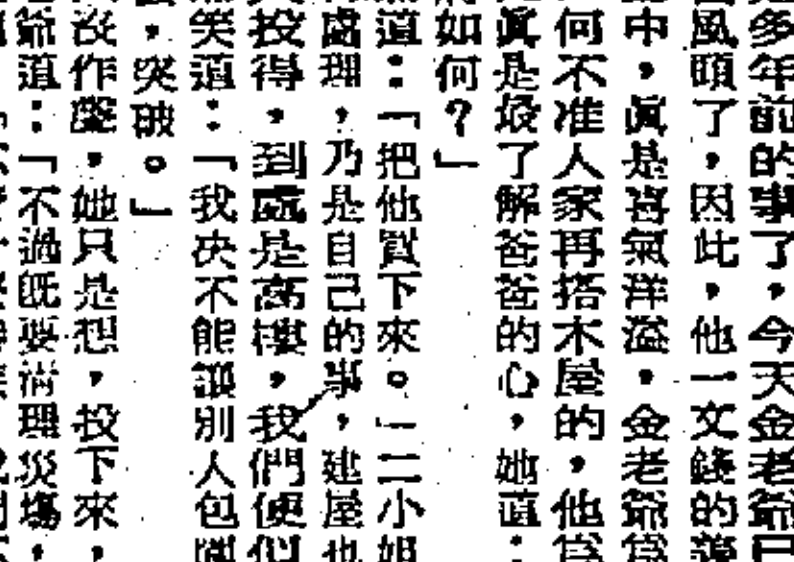 多年前的事了，今天金老爺已
風頭了，因此，他一文錢的
中，眞是喜氣洋溢，金老爺爲
何不准人家再搭木屋的，他爲
眞是最了解爸爸的心，她道：
如何？」
道：「把他買下來。」二小姐
處理，乃是自己的事，建屋也
投得，到處是高樓，我們便似
笑道：「我决不能讓別人包圍
，突破。」
沒作聲，她只是想，投下來，
爺道：「不過既要淸理災塲，